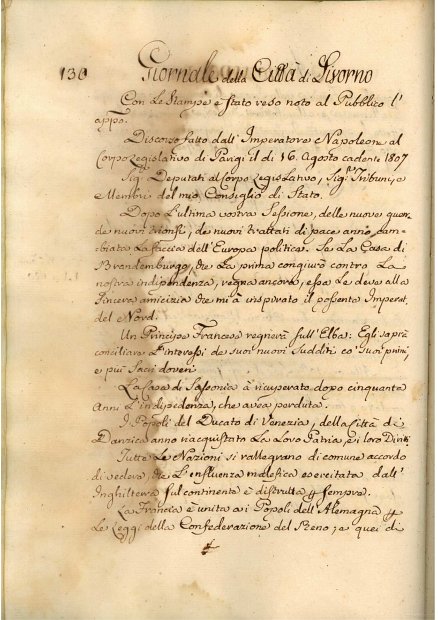 130 Giornale della Città di Livorno
Con Le Stampe è stato reso noto al Pubblico l'
appo.
Discorso fatto dall'Imperatore Napoleone al
Corpo Legislativo di Parigi il di 16. Agosto cadente 1807
Sig.i Deputati al Corpo Legislativo, Sig.i Tribuni, e
Membri del mio Consiglio di Stato.
Dopo L'ultima vostra Sessione, delle nuove guerre
de nuovi trionfi, de nuovi trattati di pace anno cam-
biata La faccia dell'Europa politica. Se La Casa di
Brandemburgo, che La prima congiurò contro La
nostra indipendenza, regna ancora, essa Le deve alla
sincera amicizia che mi à inspirato il possente Imperat.
del Nord.
Un Principe Francese regnerà sull'Elba: Egli saprà
conciliare L'interessi de suoi nuovi Sudditi co' suoi primi,
e più Sacri doveri
La Casa di Sassonia à ricuperato dopo cinquanta
Anni L'indipendenza, che avea perduta.
I Popoli del Ducato di Venezia, della Città di
Danzica anno riacquistato La Loro Patria, e i loro Diritti
Tutte Le Nazioni si rallegrano di comune accordo
di vedere, che L'influenza malefica esercitata dall'
Inghilterra sul continente è distrutta p sempre.
La Francia è unita a i Popoli dell'Alemagna p
Le Leggi della Confederazione del Reno; e quei di